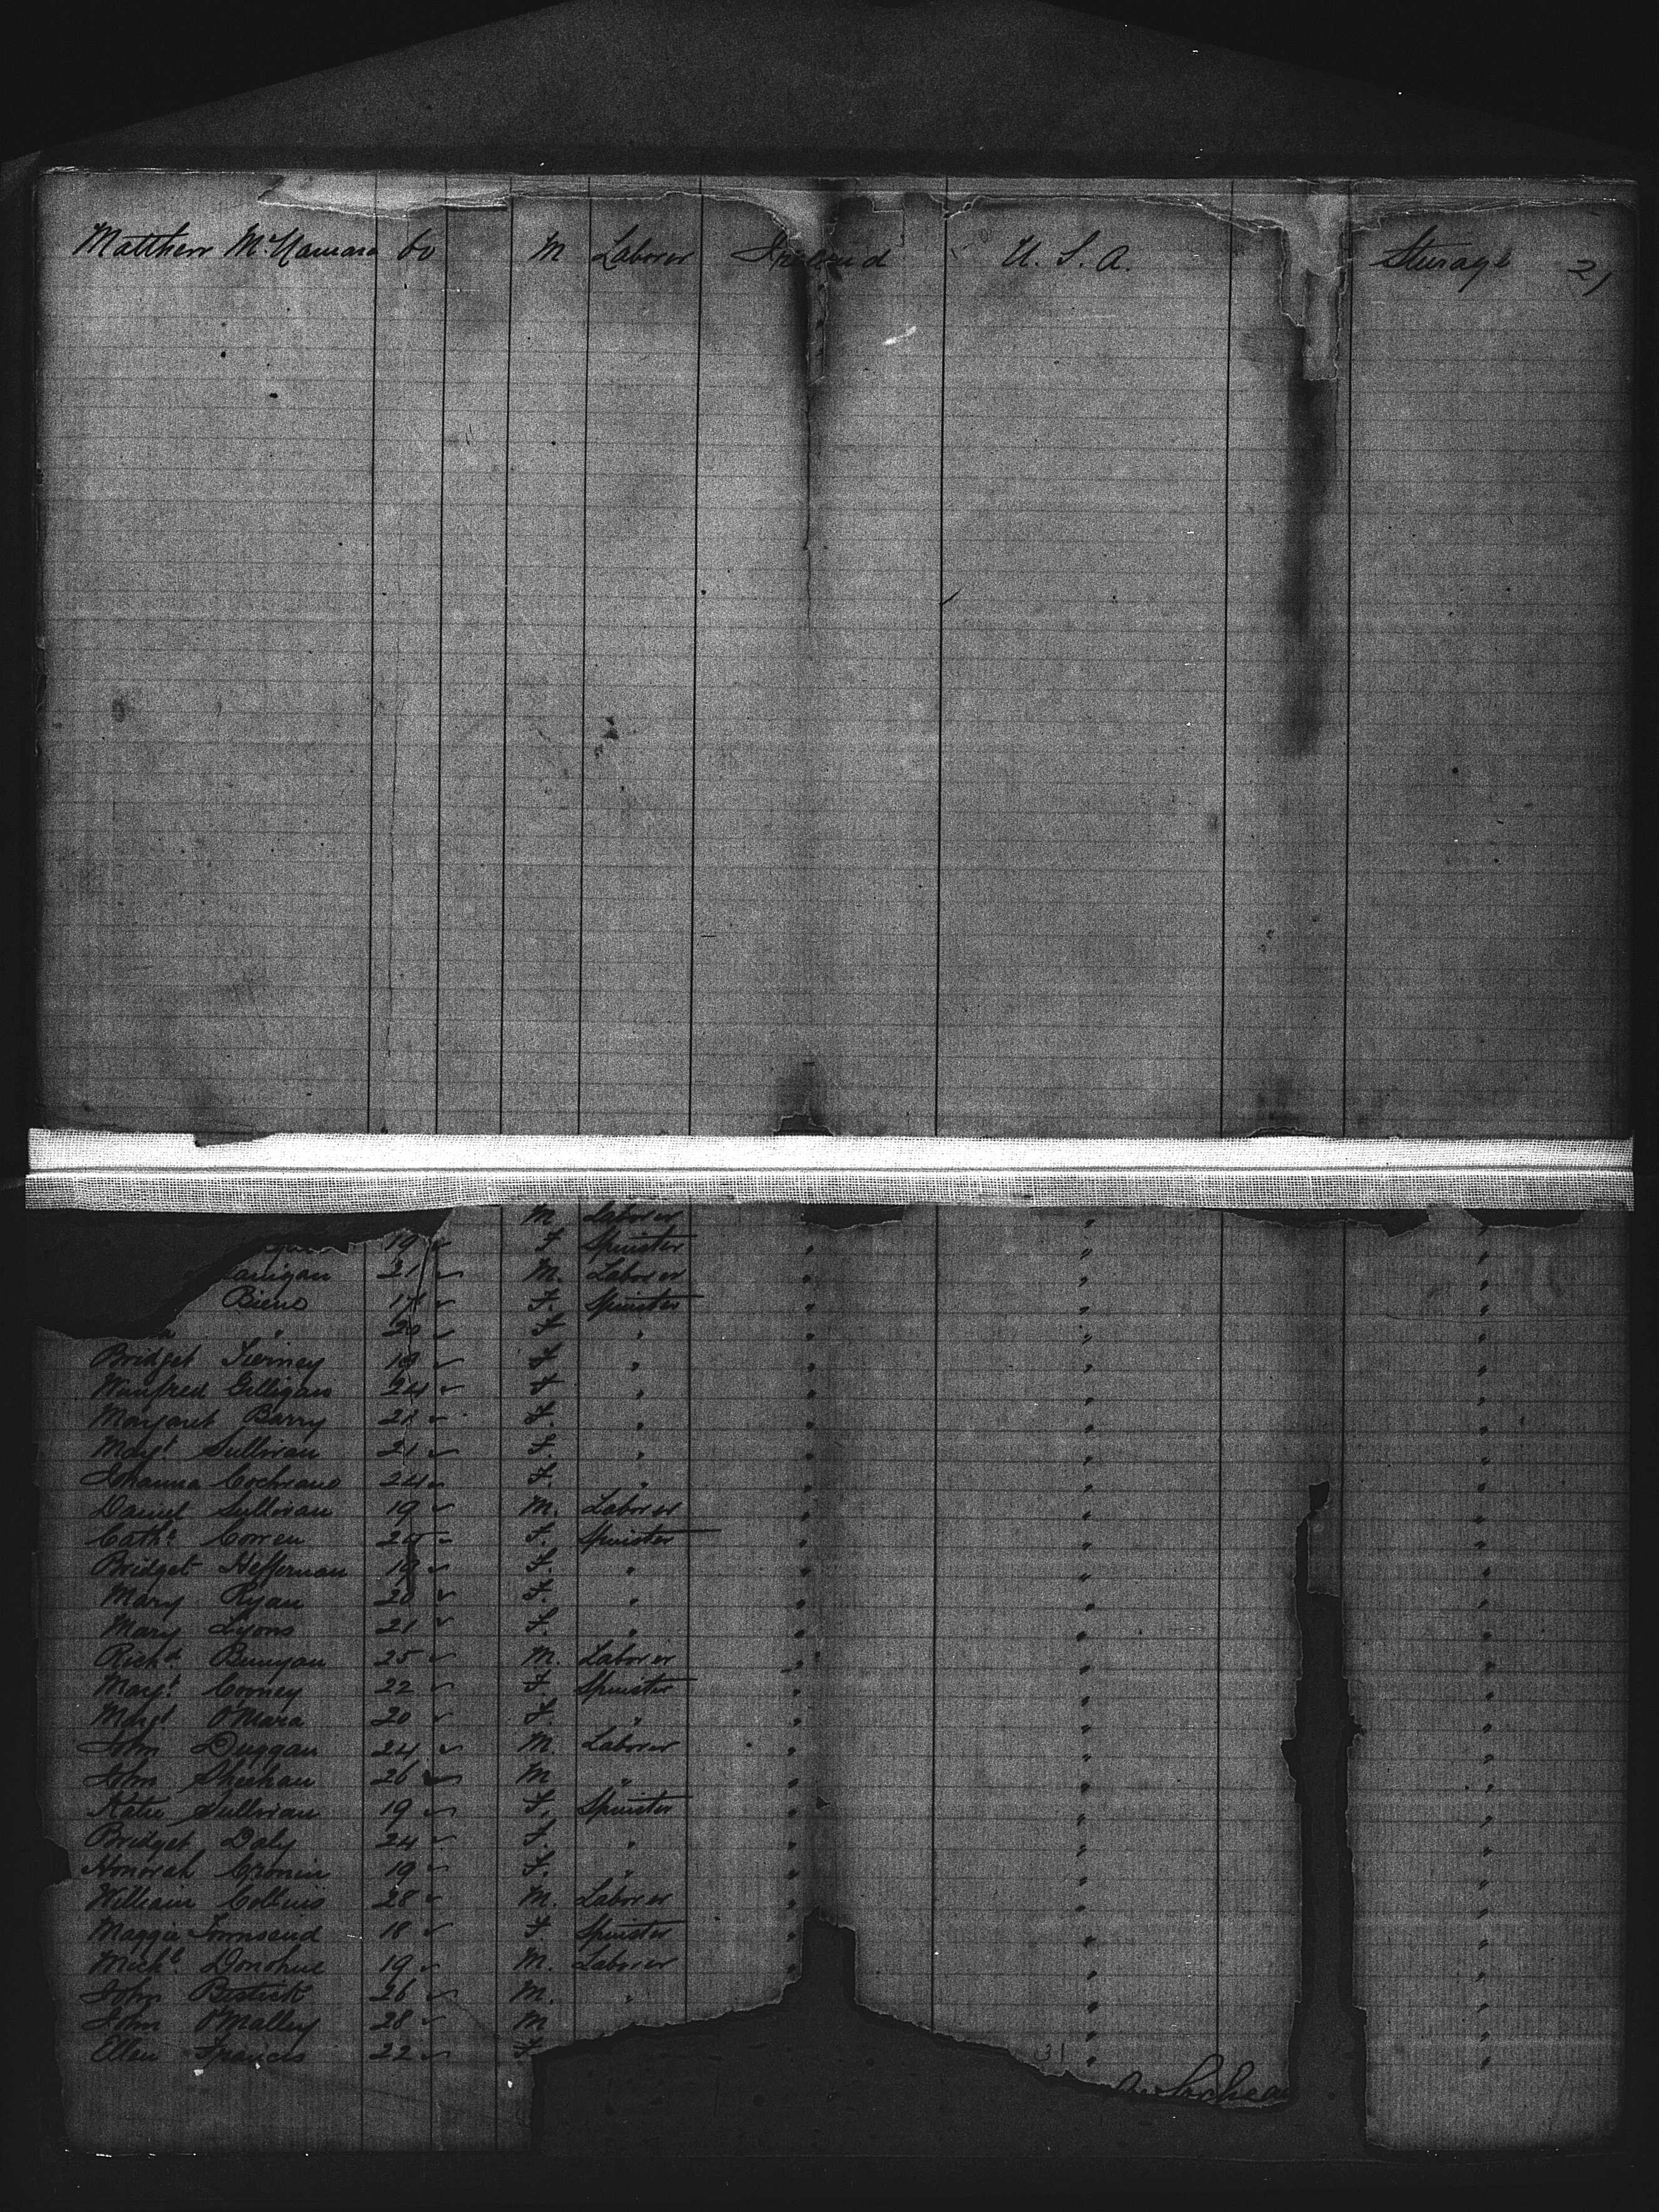 Matthew McNamara 60 M Laborer Ireland U. S. A. Sturage 21
M. Laborer "
19 F. Spinster " " "
anigan 21 M. Laborer " " "
Biene 17 F. Spinster " " "
a " 20 F " " " "
Bridget Tierney 19 F " " " "
Winifred Gilligan 24 F " " " "
Margaret Barry 21 F. " " " "
Margt. Sullivan 21 F. " " " "
Johanna Cochrane 24 F. " " " "
Daniel Sullivan 19 M. Laborer " " "
Cathe. Correu 25 F. Spinster " " "
Bridget Heffernan 19 F. " " " "
Mary Ryan 20 F. " " " "
Mary Lyons 21 F. " " " "
Richd Bunyan 25 M. Laborer " " "
Margt. Cooney 22 F Spinster " " "
Margt O'Mara 20 F. " " " "
John Duggan 24 M. Laborer " " "
John Sheehan 26 M " " " "
Katie Sullivan 19 F. Spinster " " "
Bridget Daly 24 F. " " " "
Honorah Cronin 19 F. " " " "
William Collins 28 M. Laborer " " "
Maggie Townsend 18 F. Spinster " " "
Michl. Donohue 19 M. Laborer " " "
John Bestick 26 M. " " "
John O'Malley 28 M " "
Ellen Francis 22 F 31 " "